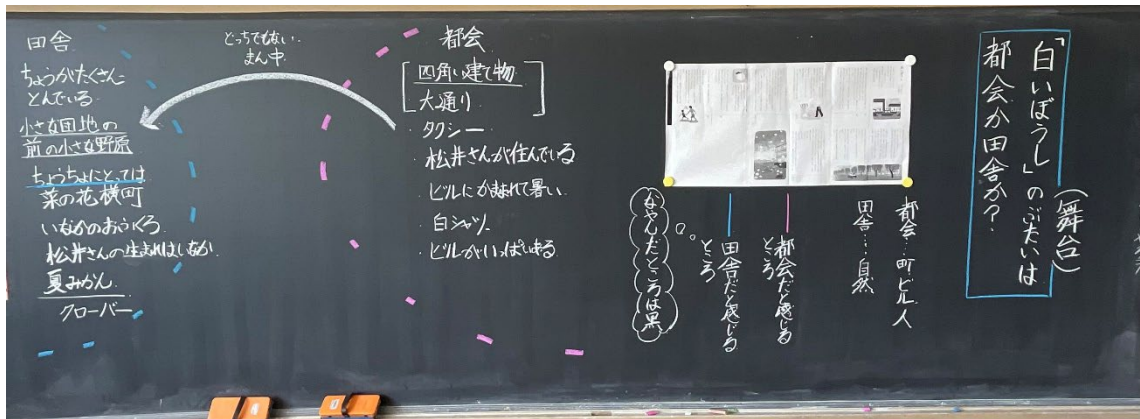 「白いぼうし」のぶたいは
(舞台)
都会か田舎か?
都会…町ビル人
田舎…自然
都会だと感じる
ところ
田舎だと感じる
ところ
なやんだところは黒
都会
四角い建て物
大通り
・タクシー
・松井さんが住んでいる
・ビルにかこまれて暑い
・白シャツ
・ビルがいっぱいある
どっちでもない
まん中
田舎
ちょうがたくさん
とんでいる
小さな団地の
前の小さな野原
ちょうちょにとっては
菜の花横町
いなかのおふくろ
松井さんの生まれはいなか
夏みかん
クローバー